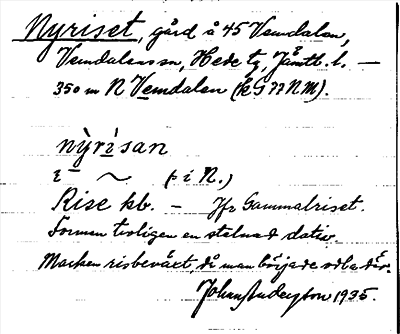 Nyriset, gård å 45 Vemdalen,
Vemdalens sn, Hede tg, Jämtl. l. —
350 m N Vemdalen (k G 77 N M).
nỳrìsan
i – ~ (i N.)
Rise kb. – Jfr Gammalriset.
Formen troligen en stelnad dativ.
Marken risbeväxt, då man började odla där.
Johan Anderson 1935.